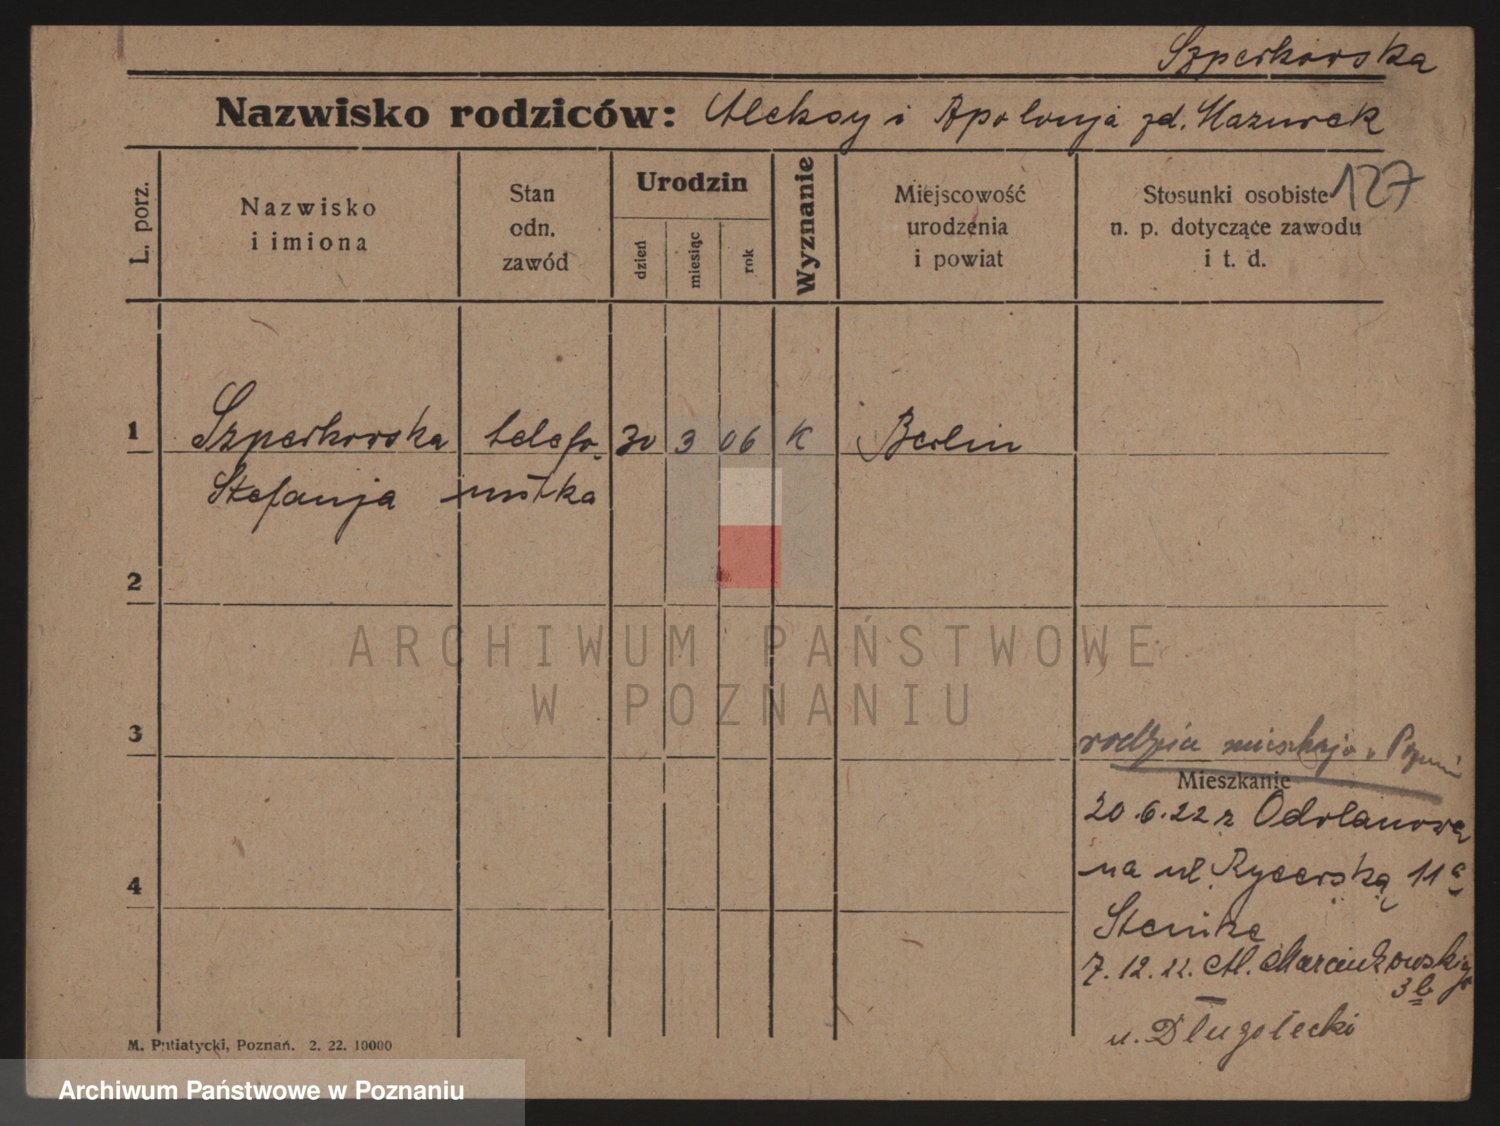 Szperkowska
Nazwisko rodziców: Aleksy i Apolonja zd. Mazurek
127
L. porz.
Nazwisko
i imiona
Stan
odn.
zawód
Urodzin
dzień
miesiąc
rok
Wyznanie
Miejscowość
urodzenia
i powiat
Stosunki osobiste
n. p. dotyczące zawodu
i t. d.
1
Szperkowska telefo- 30 3 06 K Berlin
Stefanja nistka
2
ARCHIWUM PAŃSTWOWE
W POZNANIU
3
rodzice mieszkają
Mieszkanie
20.6.22 z Odolanowa
na ul. Rycerską 11a
4
7.12.22. Al. Marcinkowskiego
3b
u. Długołęcki
M. Putiatycki, Poznań. 2. 22. 10000
Archiwum Państwowe w Poznaniu